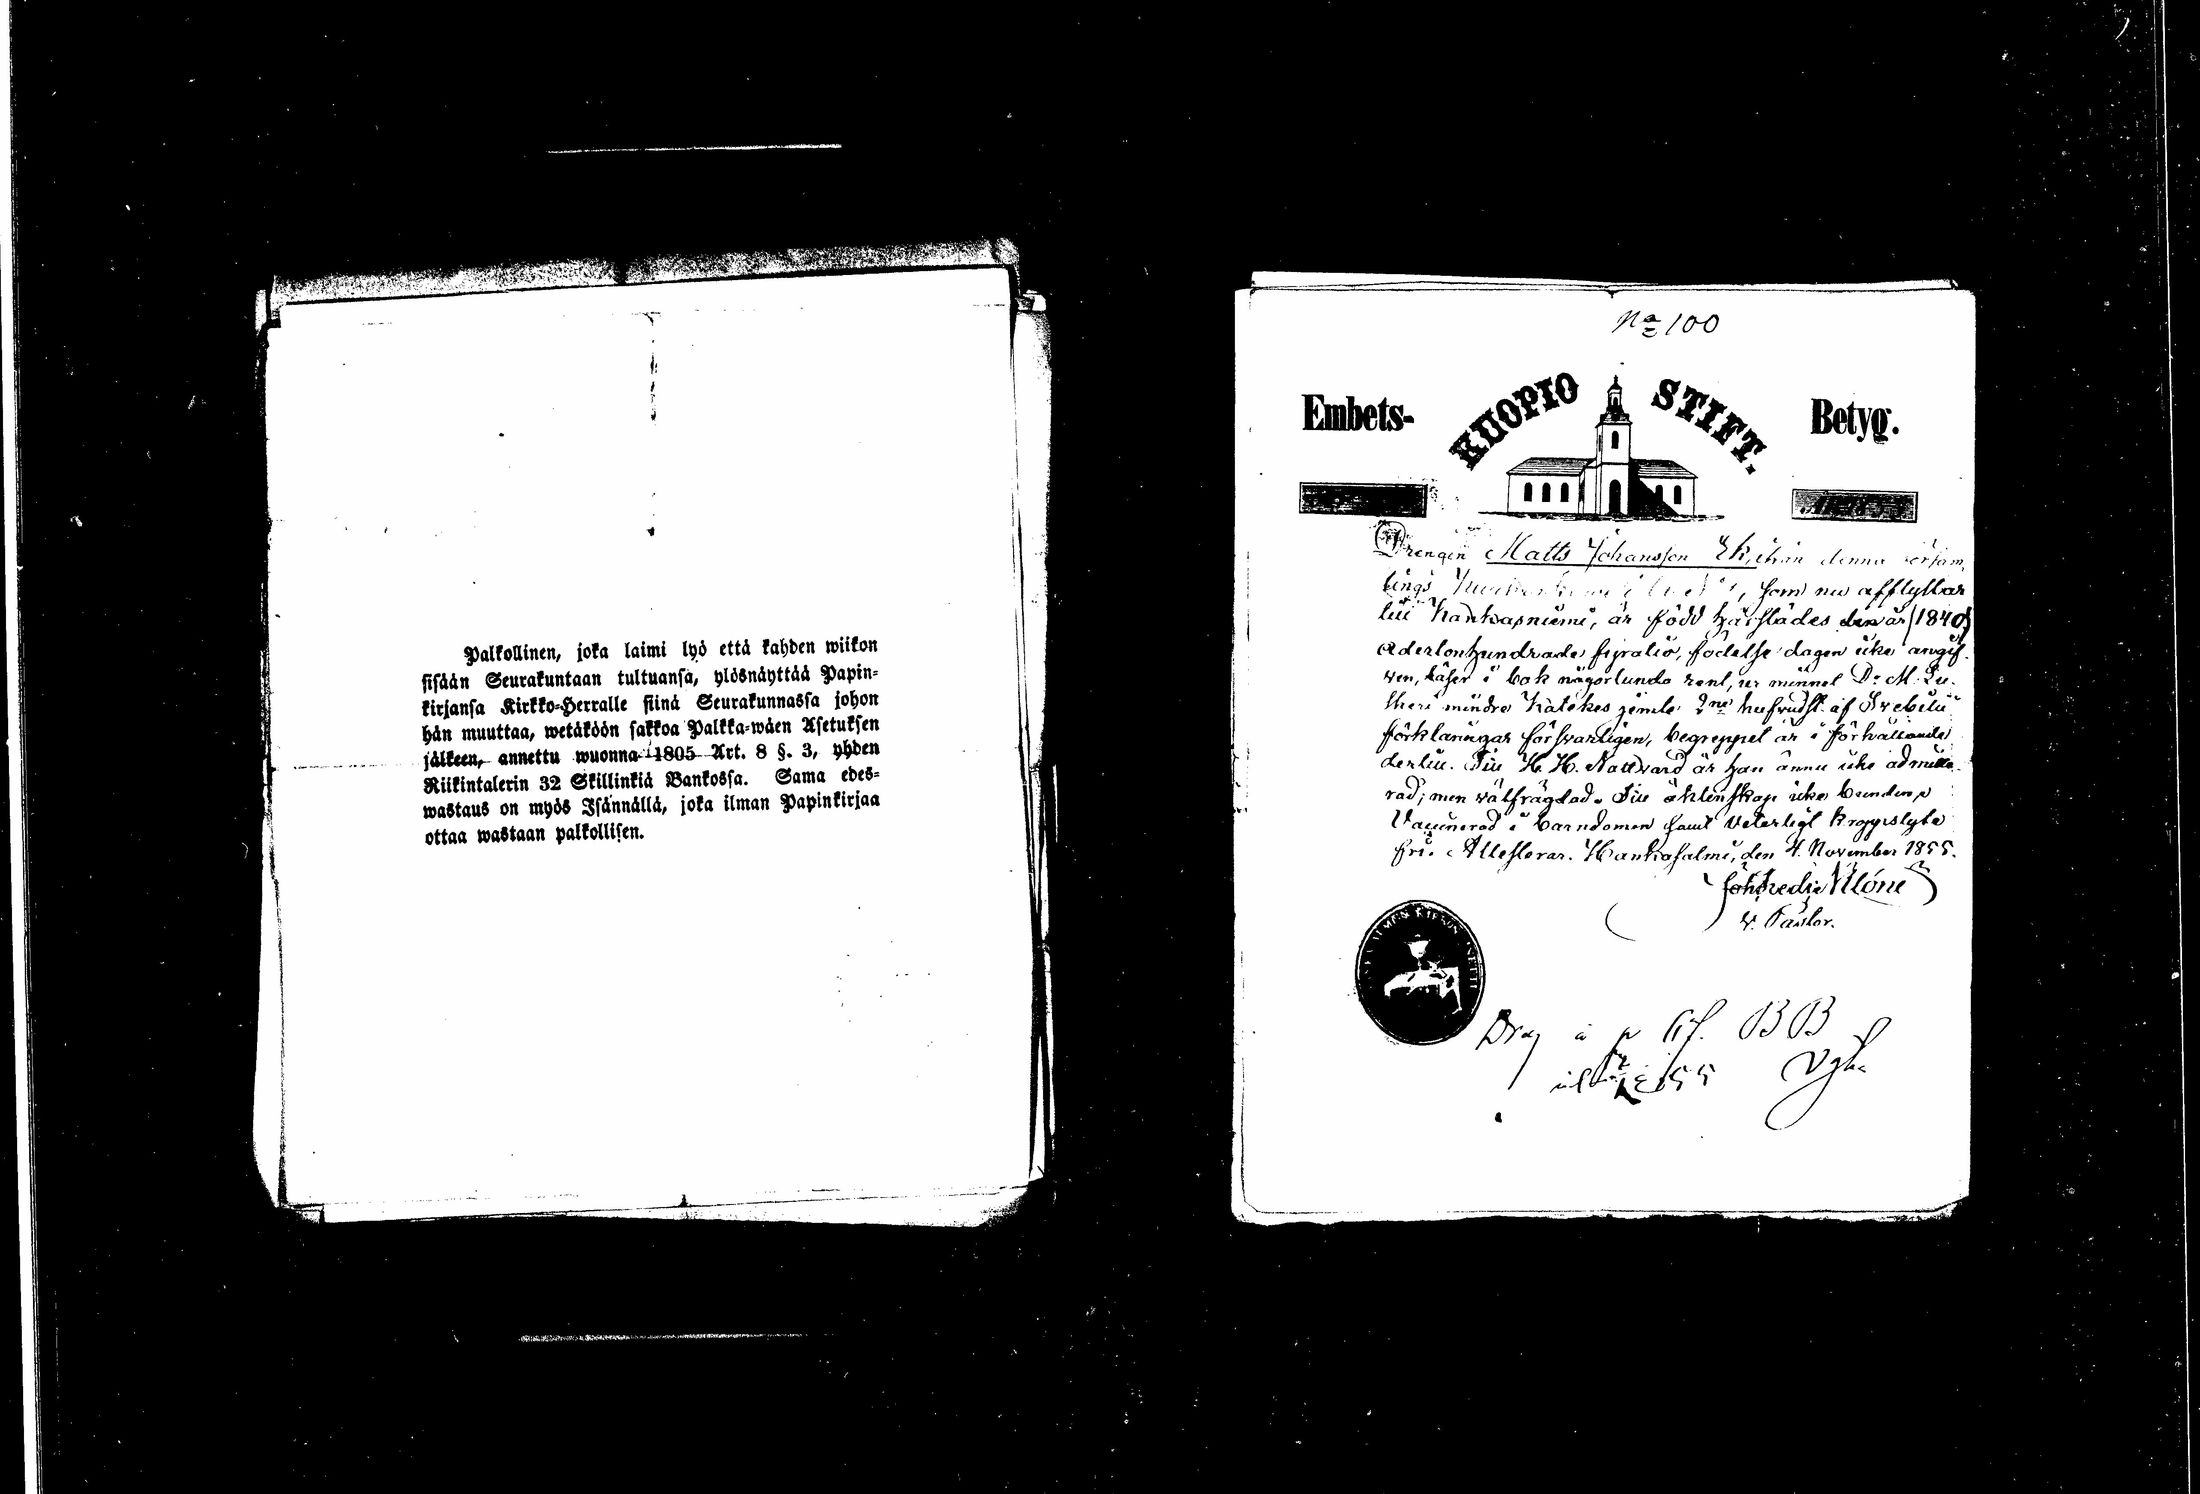 Palkollinen, joka laimi lyö että kahden wiikon
sisään Seurakuntaan tultuansa, ylösnäyttää Papin-
kirjansa Kirkko-Herralle siinä Seurakunnassa johon
hän muuttaa, wetäköön sakkoa Palkka-wäen Asetuksen
jälkeen, annettu wuonna 1805 Art. 8 §. 3, yhden
Riikintalerin 32 Skillinkiä Bankossa. Sama edes-
wastaus on myös Isännällä, joka ilman Papinkirjaa
ottaa wastaan palkollisen.
No 100
Embets- KUOPIO STIFT. Betyg.
Drengen Matts Johansson ifrån denna försam-
lings som nu afflyttar
till Kankasniemi, är född härstädes år (1840)
Adertonhundrade fyratio, födelse dagen icke angif-
ven, läser i bok någorlunda rent, ur minnet Dr M. Lu-
theri mindre Katekes jemte 2ne hufvudst. af Svebilii
förklaringar försvarligen, begreppet är i förhållande
dertill. Till H. H. Nattvard är han ännu icke admitte-
rad; men välfrägdad. Till äktenskap icke bunden,
Vaccinerad i barndomen samt veterligt kroppslyte
fri. Attesterar. Hankasalmi, den 4. November 1855.
v. Pastor.
B B